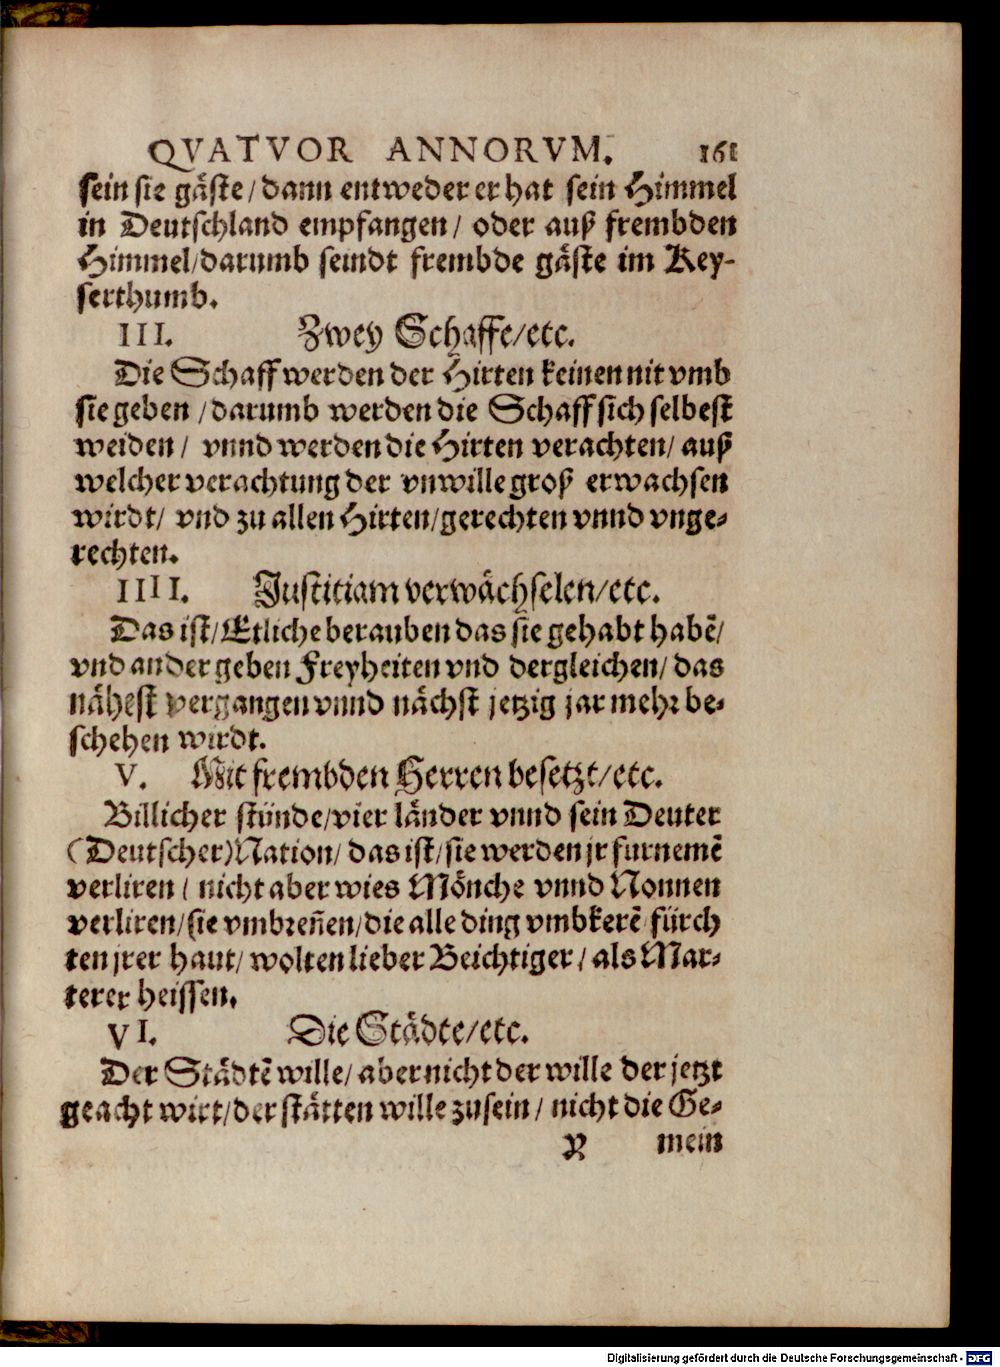 QVATVOR ANNORVM. 161
sein sie gäste/dann entweder er hat sein Himmel
in Deutschland empfangen/ oder auß frembden
Himmel/darumb seindt frembde gäste im Key-
serthumb.
III. Zwey Schaffe/etc.
Die Schaff werden der Hirten keinen nit vmb
sie geben /darumb werden die Schaff sich selbest
weiden/ vnnd werden die Hirten verachten/ auß
welcher verachtung der vnwille groß erwachsen
wirdt/ vnd zu allen Hirten/gerechten vnnd vnge-
rechten.
IIII. Justitiam verwächselen/etc.
Das ist/Etliche berauben das sie gehabt habē/
vnd ander geben Freyheiten vnd dergleichen/ das
nähest vergangen vnnd nächst jetzig jar mehr be-
schehen wirdt.
V. Mit frembden Herren besetzt/etc.
Billicher stünde/vier länder vnnd sein Deuter
(Deutscher)Nation/ das ist/sie werden jr furnemē
verliren/ nicht aber wies Mönche vnnd Nonnen
verliren/sie vmbreñen/die alle ding vmbkerē fürch
ten jrer haut/ wolten lieber Beichtiger/ als Mar-
terer heissen.
VI. Die Städte/etc.
Der Städtē wille/ aber nicht der wille der jetzt
geacht wirt/der stätten wille zusein/ nicht die Ge-
X mein
Digitalisierung gefördert durch die Deutsche Forschungsgemeinschaft - DFG